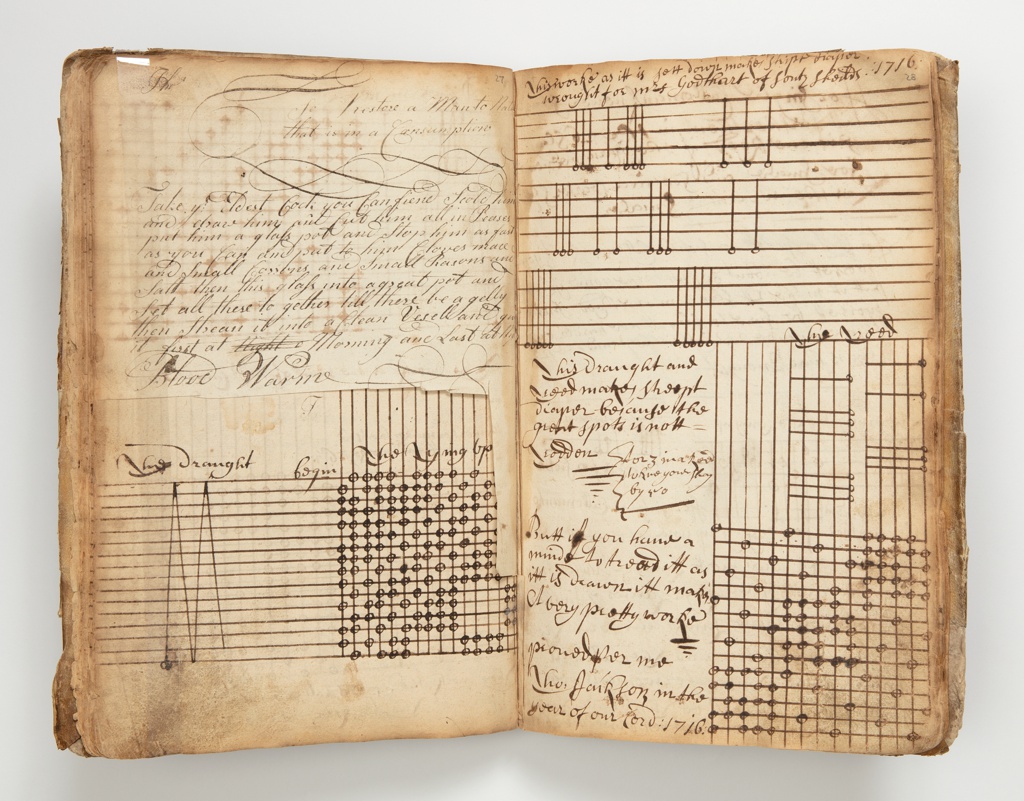 Tho
27
To restore a Man to
that is in a Consumption
Take ye Eldest Cock you Can fiend Scold him
and draw him and Cut him all in Peases
put him a glass pot and Stop him as fast
as you Can and put to him Cloves mace
and Small Corrons and Small Reasons and
Salt then this glass into a great pot and
Set all these to gether till there be a gelly
then Strean it into a Clean Vesell and
it fast at Night & Morning and Last at
Blood Warme
The Draught begin The Tying Up
This worke as itt is sett down make stript diaper
wrought for mrs Godthart of 1716
28
The Reed
This Draught and
Reed makes stript
diaper because the
great spots is nott
Redden
Butt if you have a
mind to tread itt as
itt is drawn itt makes
A very pretty worke
per me
Tho: Jackson in the
year of our Lord: 1716